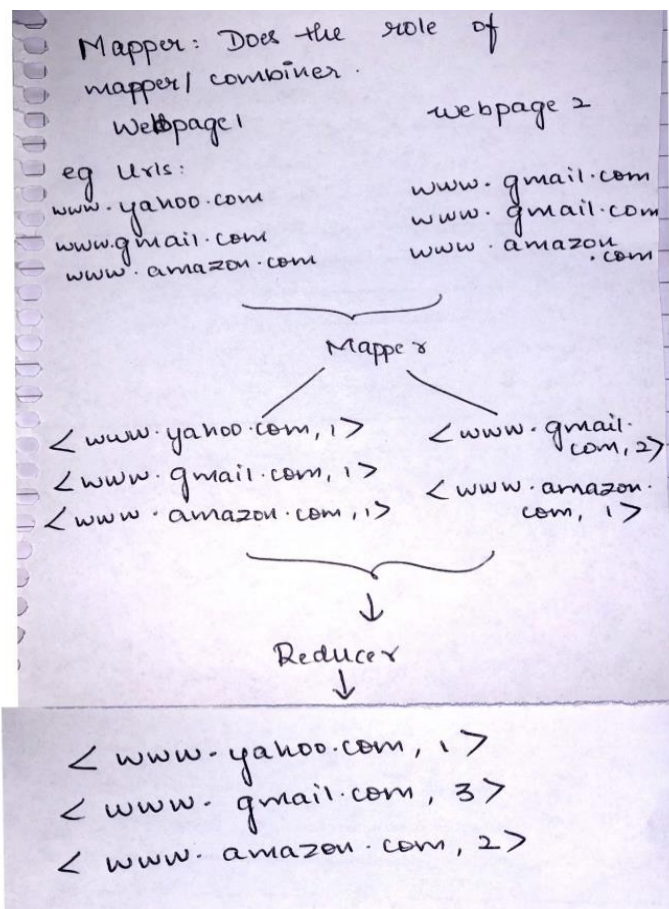 Mapper: Does the role of
mapper/combiner.
Webpage1
webpage 2
eg Urls:
www.yahoo.com
www.gmail.com
www.amazon.com
www.gmail.com
www.gmail.com
www.amazon
.com
Mapper
<www.yahoo.com, 1>
<www.gmail.com, 1>
<www.amazon.com, 1>
<www.gmail.
com, 2>
<www.amazon.
com, 1>
Reducer
<www.yahoo.com, 1>
<www.gmail.com, 3>
<www.amazon.com, 2>